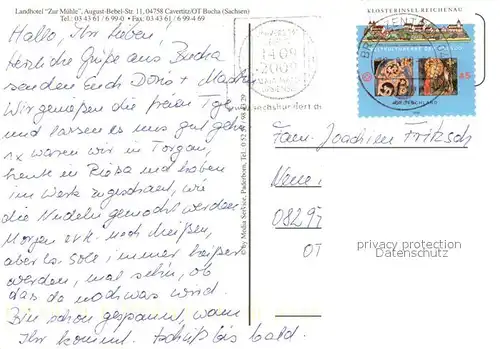 Landhotel "Zur Mühle", August-Bebel-Str. 11, 04758 Cavertitz/OT Bucha (Sachsen)
Tel.: 03 43 61 / 6 99-0 • Fax: 03 43 61 / 6 99-4 69
Hallo, Ihr Lieben,
Herzliche Grüße aus Bucha
senden Euch Doris +
Wir genießen die freien Tage
und lassen es uns gut gehn.
1x waren wir in Torgau,
heute in Riesa und haben
im Werk zugeschaut, wie
die Nudeln gemacht werden.
Morgen evt. noch Meißen,
aber es soll immer heißer
werden, mal sehn, ob
das da noch was wird.
Bin schon gespannt, wann
Ihr kommt. Tschüß bis bald.
© by Media Service, Paderborn, Tel.: 0 52
KLOSTERINSEL REICHENAU
WELTKULTURERBE DER UNESCO
45
DEUTSCHLAND
BRIEFZENTRUM
Fam. Joachim Fritzsch
Neue
0829
OT
privacy protection
Datenschutz